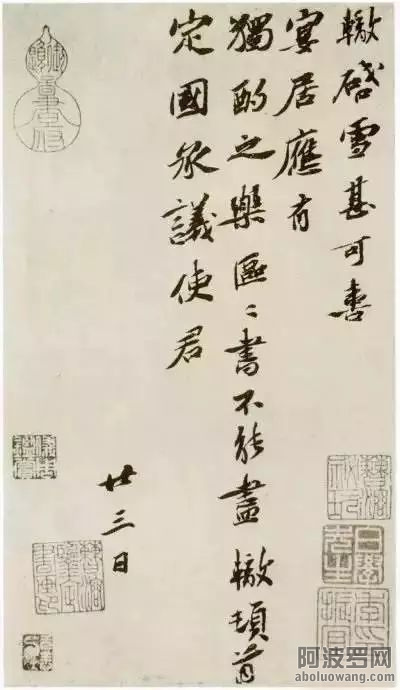 轍啓雪甚可喜
宴居應有
獨酌之樂區〻書不能盡轍頓首
定國承議使君
廿三日
阿波罗网
aboluowang.com